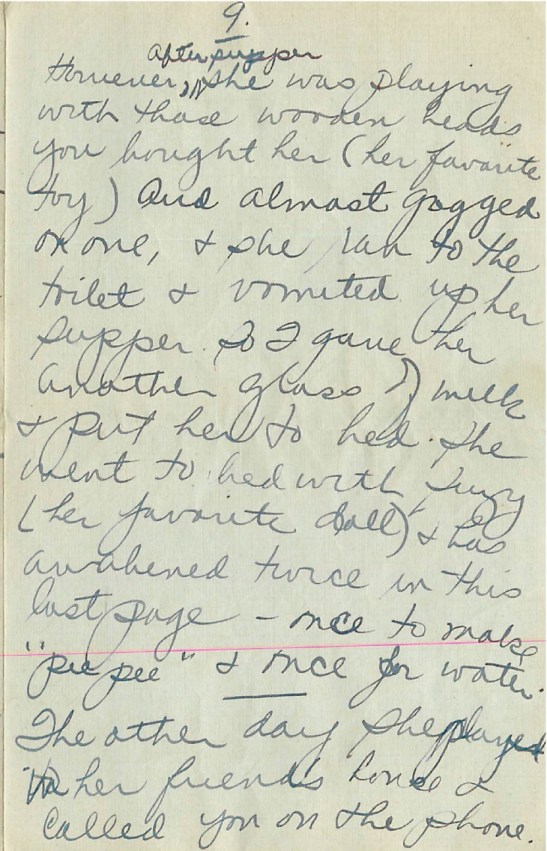 9.
after supper
However, she was playing
with those wooden beads
you bought her (her favorite
toy) and almost gagged
on one, & she ran to the
toilet & vomited up her
supper. So I gave her
another glass of milk
& put her to bed. She
went to bed with Suzy
(her favorite doll) & has
awakened twice in this
last page - once to make
"pee pee" & once for water.
The other day she played
in her friends house &
called you on the phone.